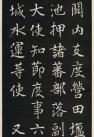 關内支度營田鹽
池押諸蕃部落副
大使知節度事六
城水運等使又